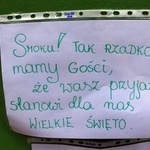 SMOKU! TAK RZADKO
mamy Gości,
że wasz przyjaz
stanowi dla nas
WIELKIE ŚWIĘTO.